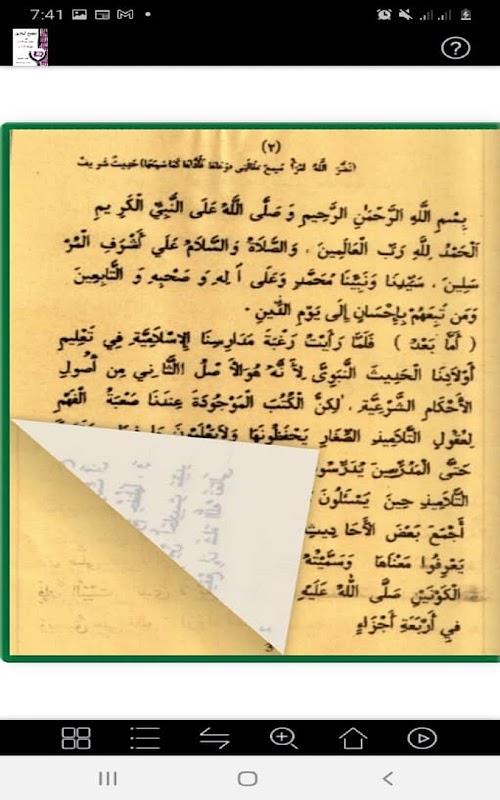 7:41
(٢)
بِسْمِ اللَّهِ الرَّحْمٰنِ الرَّحِيمِ وَ صَلَّى اللَّهُ عَلَى النَّبِيِّ الْكَرِيمِ
اَلْحَمْدُ لِلَّهِ رَبِّ الْعَالَمِينَ . وَالصَّلَاةُ وَالسَّلَامُ عَلَي أَشْرَفِ الْمُرْ
سَلِينَ . سَيِّدِنَا وَنَبِيِّنَا مُحَمَّدٍ وَعَلَى آلِهِ وَ صَحْبِهِ وَ التَّابِعِينَ
وَمَنْ تَبِعَهُمْ بِإِحْسَانٍ إِلَى يَوْمِ الدِّينِ .
( أَمَّا بَعْدُ ) فَلَمَّا رَأَيْتُ رَغْبَةَ مَدَارِسِنَا الْإِسْلَامِيَّةِ فِي تَعْلِيمِ
أَوْلَادِنَا الْحَدِيثَ النَّبَوِيَّ لِأَنَّهُ هُوَالْأَصْلُ الثَّانِي مِنْ أُصُولِ
الْأَحْكَامِ الشَّرْعِيَّةِ . لٰكِنَّ الْكُتُبَ الْمَوْجُودَةَ عِنْدَنَا صَعْبَةُ الْفَهْمِ
لِعُقُولِ التَّلَامِيذِ الصِّغَارِ يَحْفَظُونَهَا وَلَايَعْلَمُونَ
حَتَّى الْمُدَرِّسِينَ يُدَرِّسُو
التَّلَامِيذِ حِينَ يَسْئَلُونَ
أَجْمَعَ بَعْضَ الْأَحَادِيثِ
يَعْرِفُوا مَعْنَاهَا وَسَمَّيْتُهُ
الْكَوْنَيْنِ صَلَّى اللَّهُ عَلَيْهِ
فِي أَرْبَعَةِ أَجْزَاءٍ
3